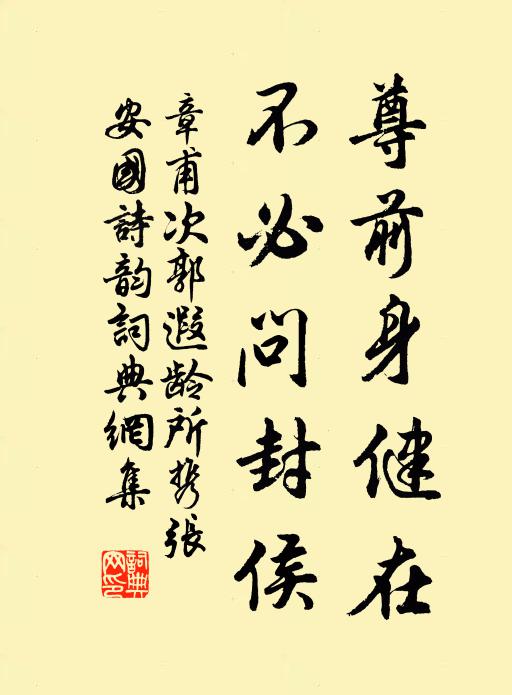 尊前身健在
不必問封侯
章甫次郭遐龄所携張
安國詩韵詞典網集
詞典网印